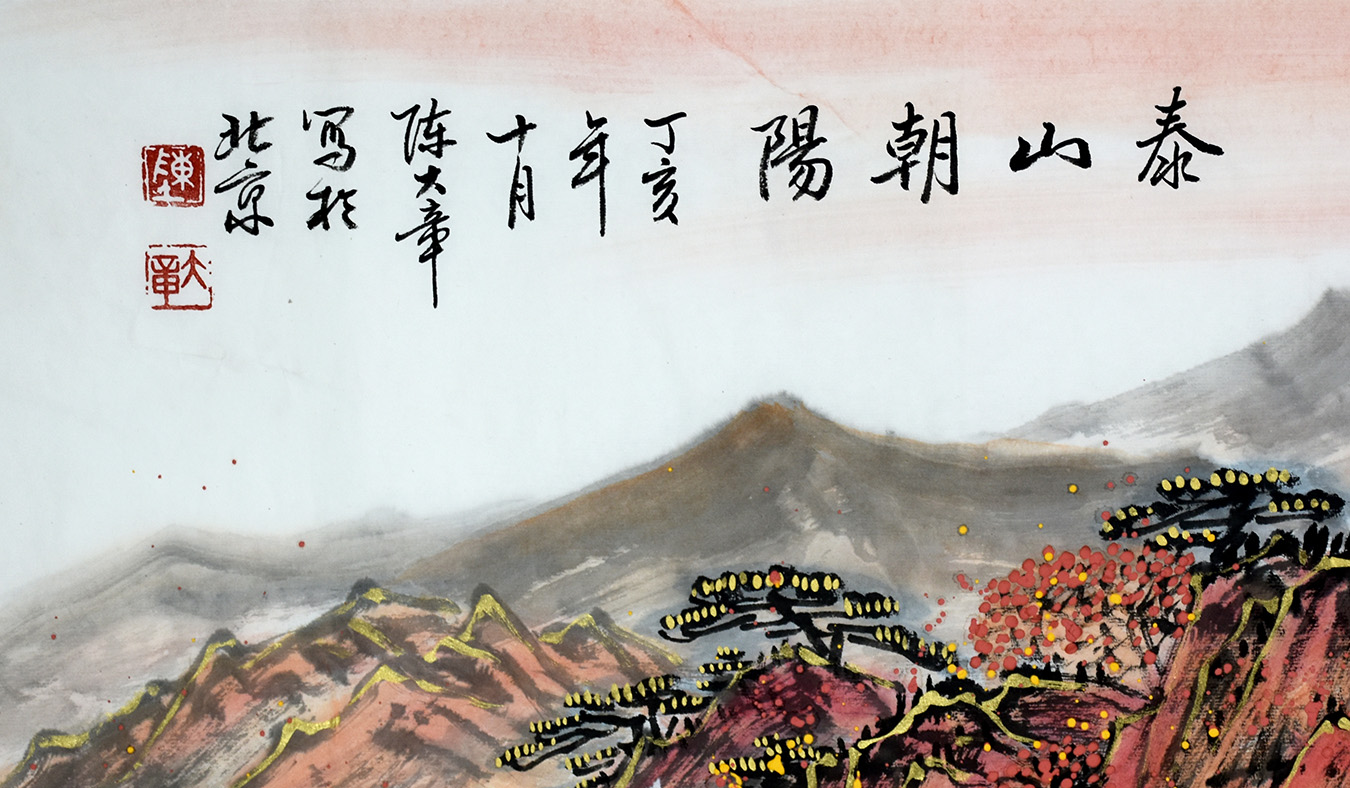 泰山朝陽
丁亥
年
十月
陈大章
写於
北京
陳
大章